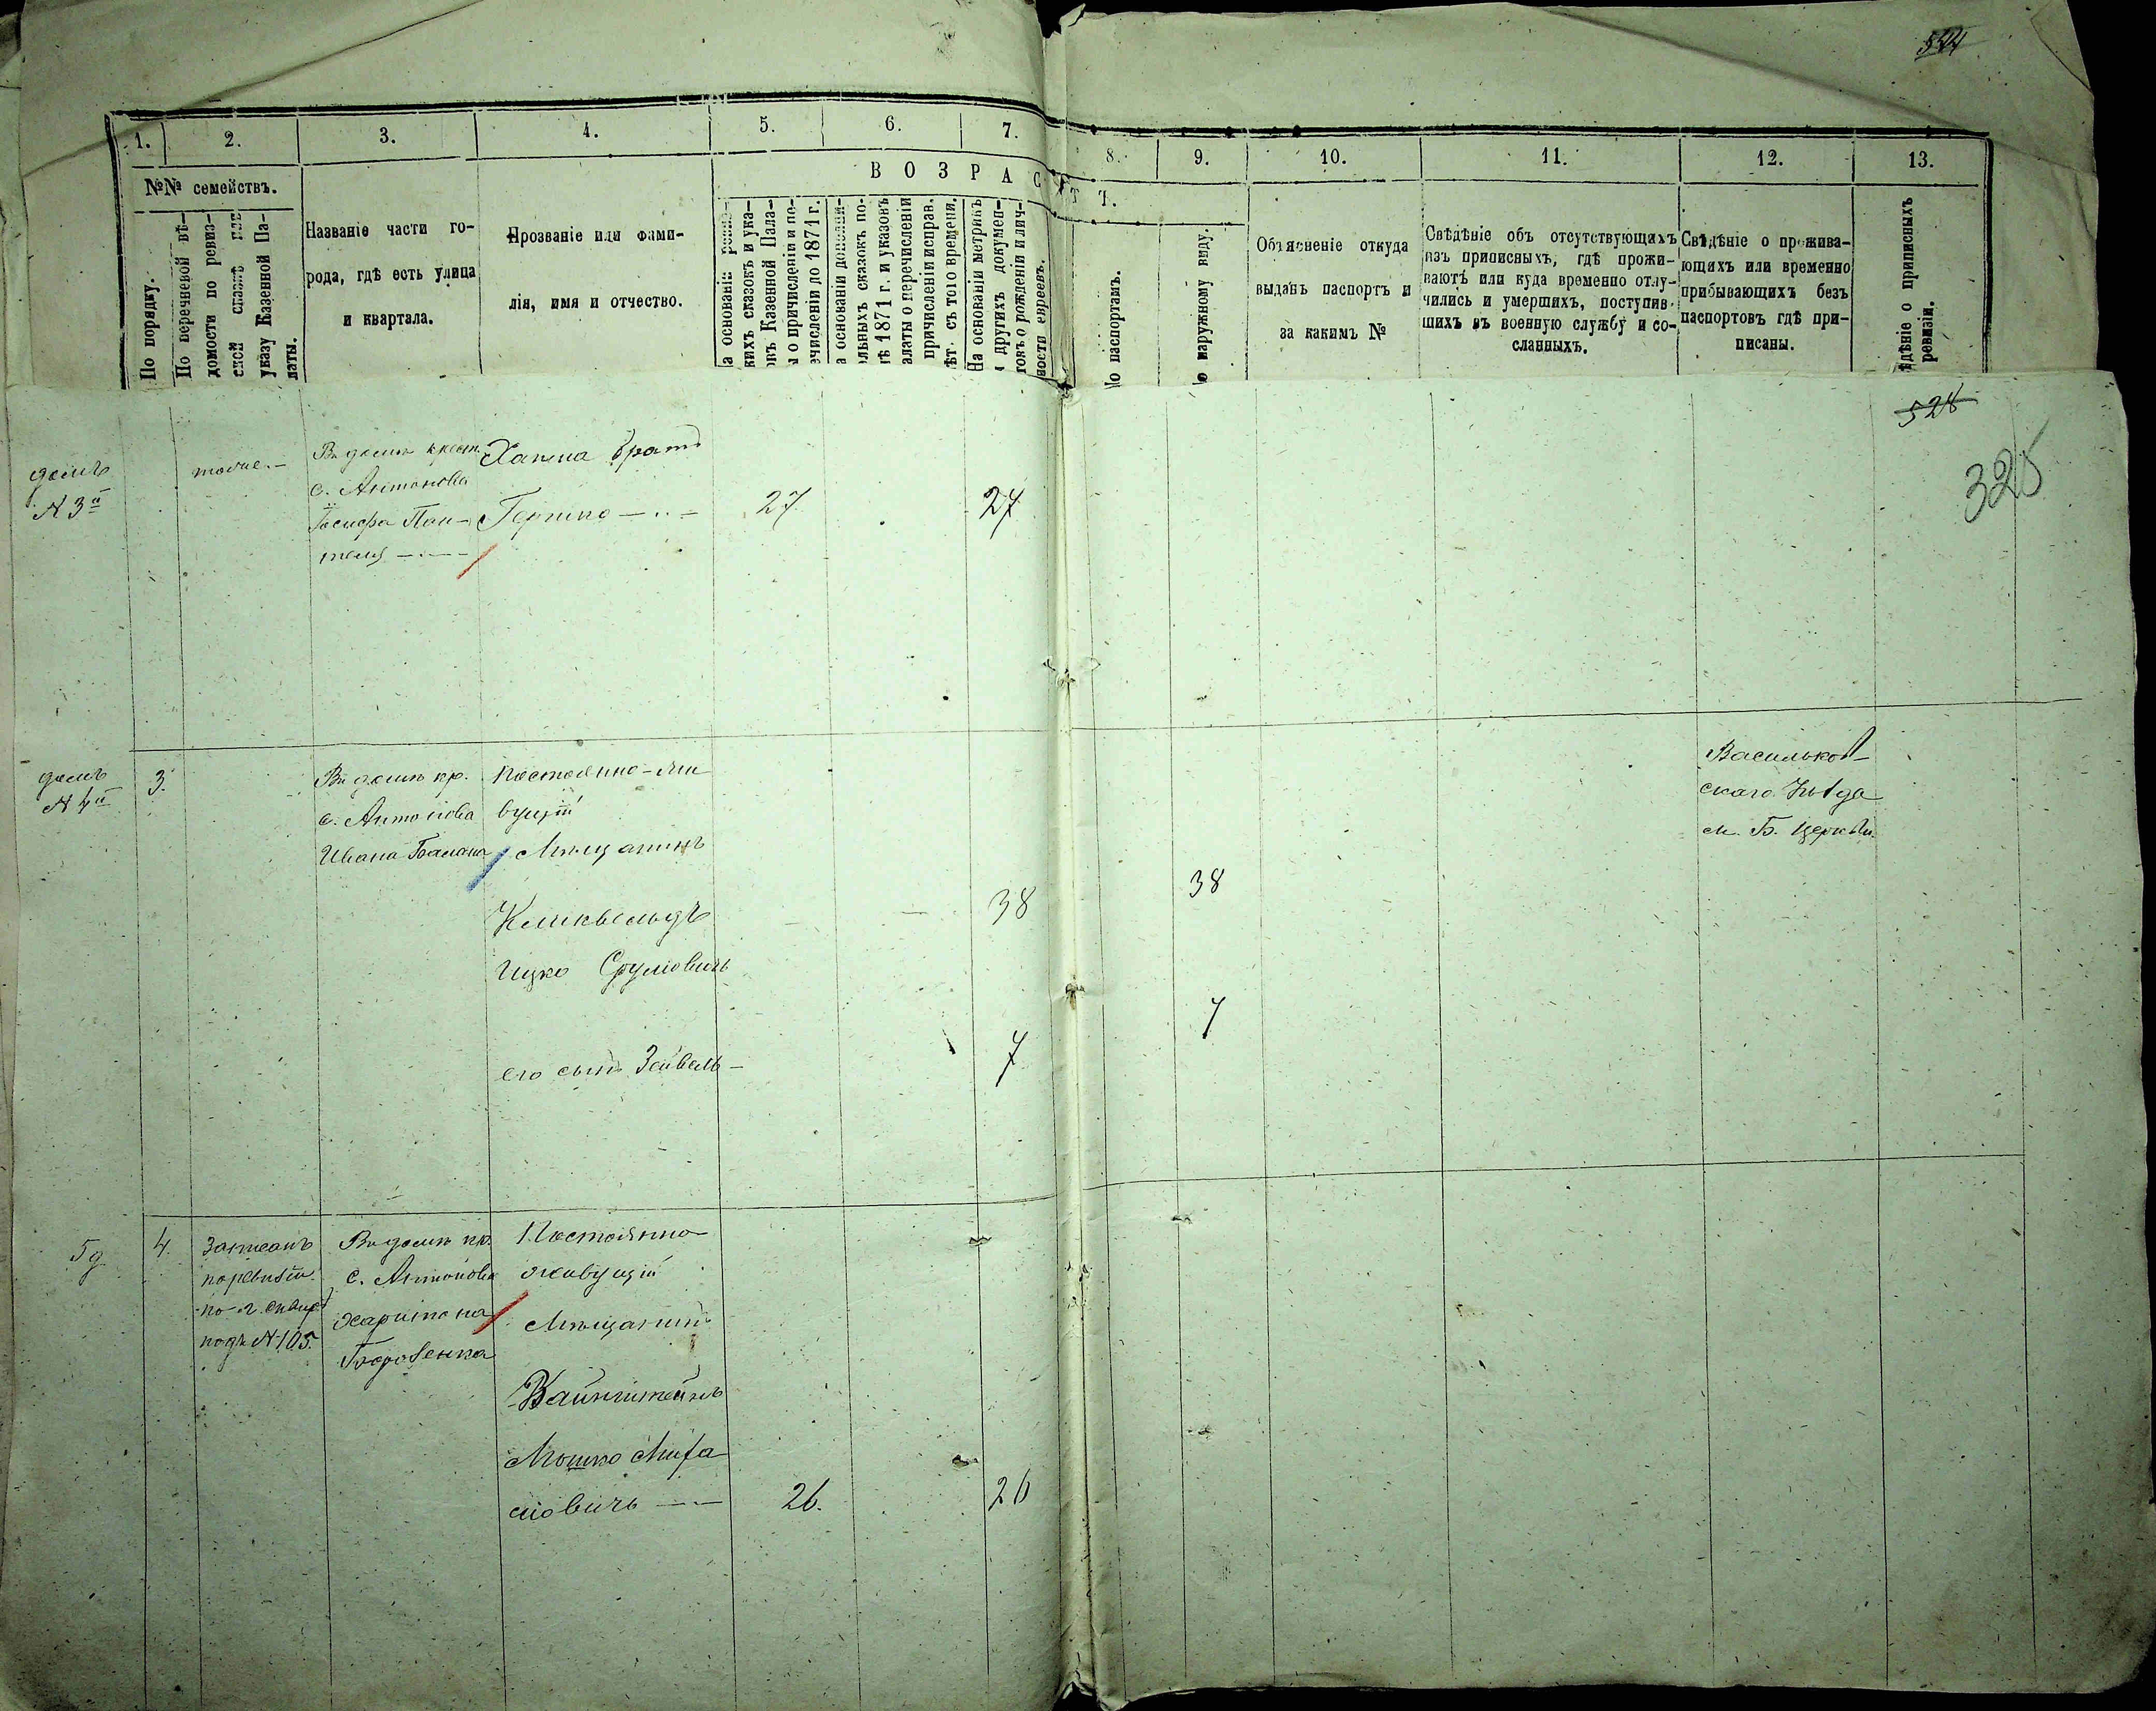 544
1. 2. 3. 4. 5. 6. 7. 8. 9. 10. 11. 12. 13.
№№ семействъ.
По порядку.
По перечневой вѣ-
домости по ревиз-
ской сказкѣ или
указу Казенной Па-
латы.
Названіе части го-
рода, гдѣ есть улица
и квартала.
Прозваніе или фами-
лія, имя и отчество.
ВОЗРАСТЪ.
а основаніи ревиз-
кихъ сказокъ и ука-
овъ Казенной Пала-
ы о причисленіи и пе-
ечисленіи до 1871 г.
а основаніи дополни-
льныхъ сказокъ по-
лѣ 1871 г. и указовъ
алаты о перечисленіи
причисленіи исправ.
ѣт. съ того времени.
На основаніи метрикъ
и другихъ докумен-
товъ о рожденіи и лич-
ности евреевъ.
По паспортамъ.
По наружному виду.
Объясненіе откуда
выданъ паспортъ и
за какимъ №
Свѣдѣніе объ отсутствующихъ
изъ приписныхъ, гдѣ прожи-
ваютъ или куда временно отлу-
чились и умершихъ, поступив-
шихъ въ военную службу и со-
сланныхъ.
Свѣдѣніе о прожива-
ющихъ или временно
прибывающихъ безъ
паспортовъ гдѣ при-
писаны.
ѣдѣніе о приписныхъ
ревизіи.
528
325
домъ
№ 3й
тоже.-
Въ домѣ крест.
с. Антонова
Іосифа Пан-
телея
Ханна братъ
Гершко
27
27
домъ
№ 4й
3.
Въ домѣ кр.
с. Антонова
Ивана
Постоянно-жи
вущій
Мѣщанинъ
Ицко Срулiовичъ
38
38
его сынъ Зейвель
7
7
Васильков-
скаго уѣзда
м. Б. Церкви.
5 д
4.
Записанъ
по ревизіи
по г. Сквирѣ
подъ № 105.
Въ домѣ кр.
с. Антонова
Харитона
Постоянно
живущій
Мѣщанинъ
Вайнштейнъ
Мошко Миха
лiовичъ
26.
26